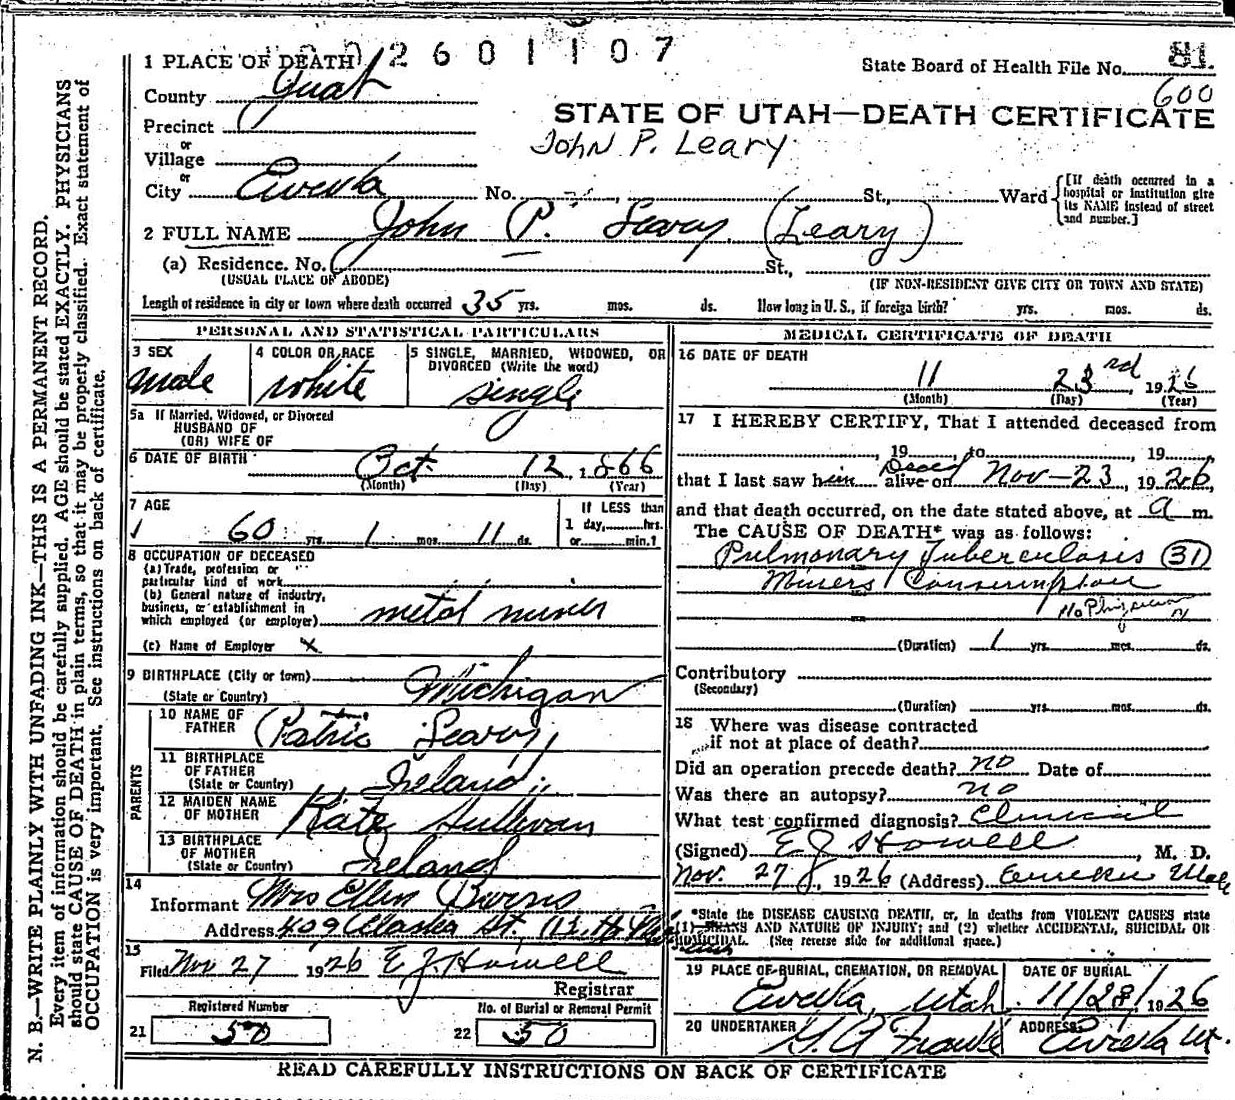 N. B.—WRITE PLAINLY WITH UNFADING INK—THIS IS A PERMANENT RECORD.
Every item of information should be carefully supplied. AGE should be stated EXACTLY. PHYSICIANS
should state CAUSE OF DEATH in plain terms, so that it may be properly classified. Exact statement of
OCCUPATION is very important. See instructions on back of certificate.
2601107
1 PLACE OF DEATH
State Board of Health File No. 81
600
County Juab
STATE OF UTAH—DEATH CERTIFICATE
Precinct
John P. Leary
or
Village
or
City Eureka No. St., Ward
[If death occurred in a
hospital or institution give
its NAME instead of street
and number.]
2 FULL NAME John P. Leary (Leary)
(a) Residence. No. St.,
(USUAL PLACE OF ABODE) (IF NON-RESIDENT GIVE CITY OR TOWN AND STATE)
Length of residence in city or town where death occurred 35 yrs. mos. ds. How long in U. S., if foreign birth? yrs. mos. ds.
PERSONAL AND STATISTICAL PARTICULARS
3 SEX male
4 COLOR OR RACE white
5 SINGLE, MARRIED, WIDOWED, OR
DIVORCED (Write the word)
single
5a If Married, Widowed, or Divorced
HUSBAND OF
(OR) WIFE OF
6 DATE OF BIRTH Oct. 12, 1866
(Month) (Day) (Year)
7 AGE
60 yrs. 1 mos. 11 ds.
If LESS than
1 day, hrs.
or min.?
8 OCCUPATION OF DECEASED
(a) Trade, profession or
particular kind of work
(b) General nature of industry,
business, or establishment in
which employed (or employer) metal miner
(c) Name of Employer x
9 BIRTHPLACE (City or town)
(State or Country) Michigan
PARENTS
10 NAME OF
FATHER Patric Leary
11 BIRTHPLACE
OF FATHER
(State or Country) Ireland
12 MAIDEN NAME
OF MOTHER Kate Sullivan
13 BIRTHPLACE
OF MOTHER
(State or Country) Ireland
14
Informant Mrs Ellen Burns
Address 409 Alaska St.
15
Filed Nov 27 1926 E J Howell
Registrar
Registered Number No. of Burial or Removal Permit
21 50 22 50
MEDICAL CERTIFICATE OF DEATH
16 DATE OF DEATH
11 23rd 1926
(Month) (Day) (Year)
17 I HEREBY CERTIFY, That I attended deceased from
, 19 , to , 19 ,
that I last saw him Dead alive on Nov-23, 1926,
and that death occurred, on the date stated above, at a m.
The CAUSE OF DEATH* was as follows:
Pulmonary Tuberculosis (31)
Miners Consumption
No Physician
(Duration) 1 yrs. mos. ds.
Contributory
(Secondary)
(Duration) yrs. mos. ds.
18 Where was disease contracted
if not at place of death?
Did an operation precede death? no Date of
Was there an autopsy? no
What test confirmed diagnosis? Clinical
(Signed) E J Howell, M. D.
Nov. 27, 1926 (Address) Eureka Utah
*State the DISEASE CAUSING DEATH, or, in deaths from VIOLENT CAUSES state
(1) MEANS AND NATURE OF INJURY; and (2) whether ACCIDENTAL, SUICIDAL OR
HOMICIDAL. (See reverse side for additional space.)
19 PLACE OF BURIAL, CREMATION, OR REMOVAL
Eureka, Utah
DATE OF BURIAL
11/28/1926
20 UNDERTAKER
ADDRESS
Eureka Ut.
READ CAREFULLY INSTRUCTIONS ON BACK OF CERTIFICATE